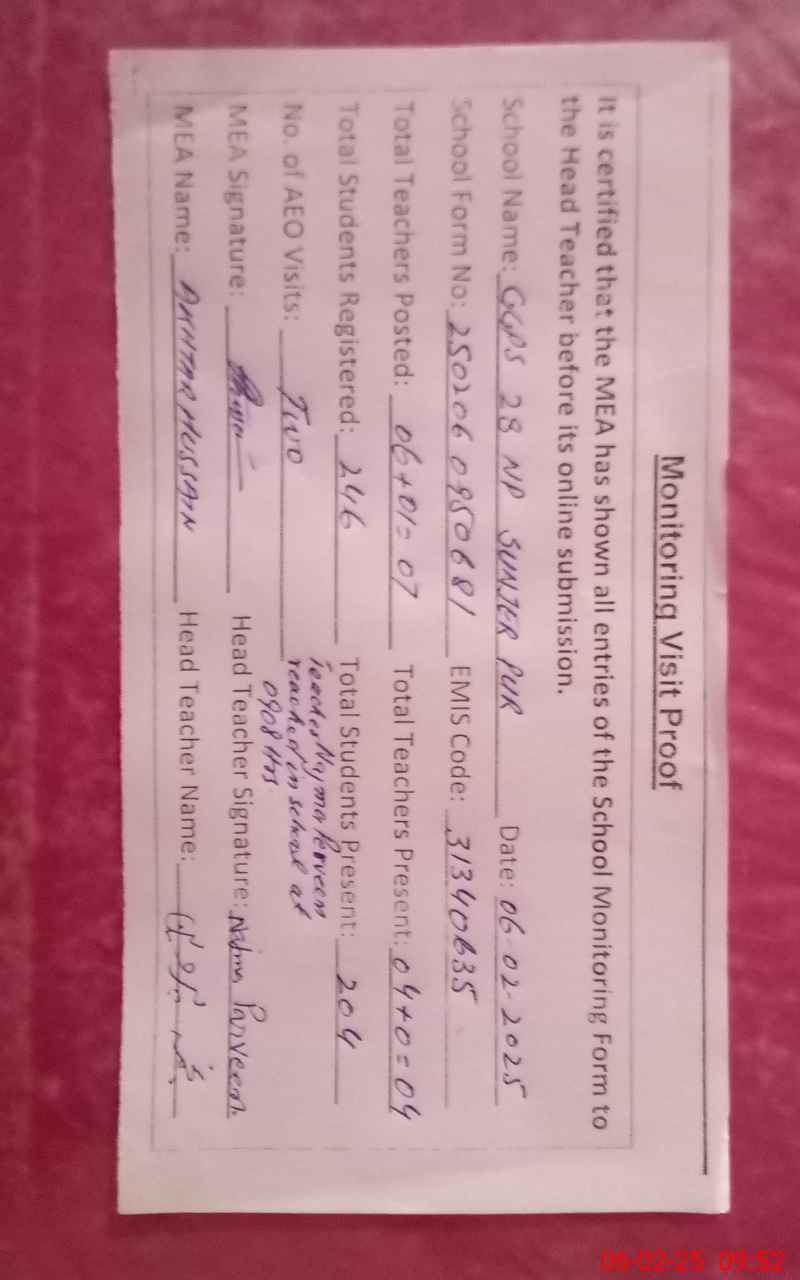 Monitoring Visit Proof
It is certified that the MEA has shown all entries of the School Monitoring Form to
the Head Teacher before its online submission.
School Name: GGPS 28 NP SUNJER PUR Date: 06-02-2025
School Form No: 250206 0950681 EMIS Code: 31340635
Total Teachers Posted: 06+01=07 Total Teachers Present: 04+0=04
Total Students Registered: 246 Total Students Present: 204
No. of AEO Visits: TWO Teacher Najma Perveen
reached in school at
0908 Hrs
MEA Signature: Head Teacher Signature: Najma Parveen
MEA Name: AKHTAR HUSSAIN Head Teacher Name:
06-02-25 09:52